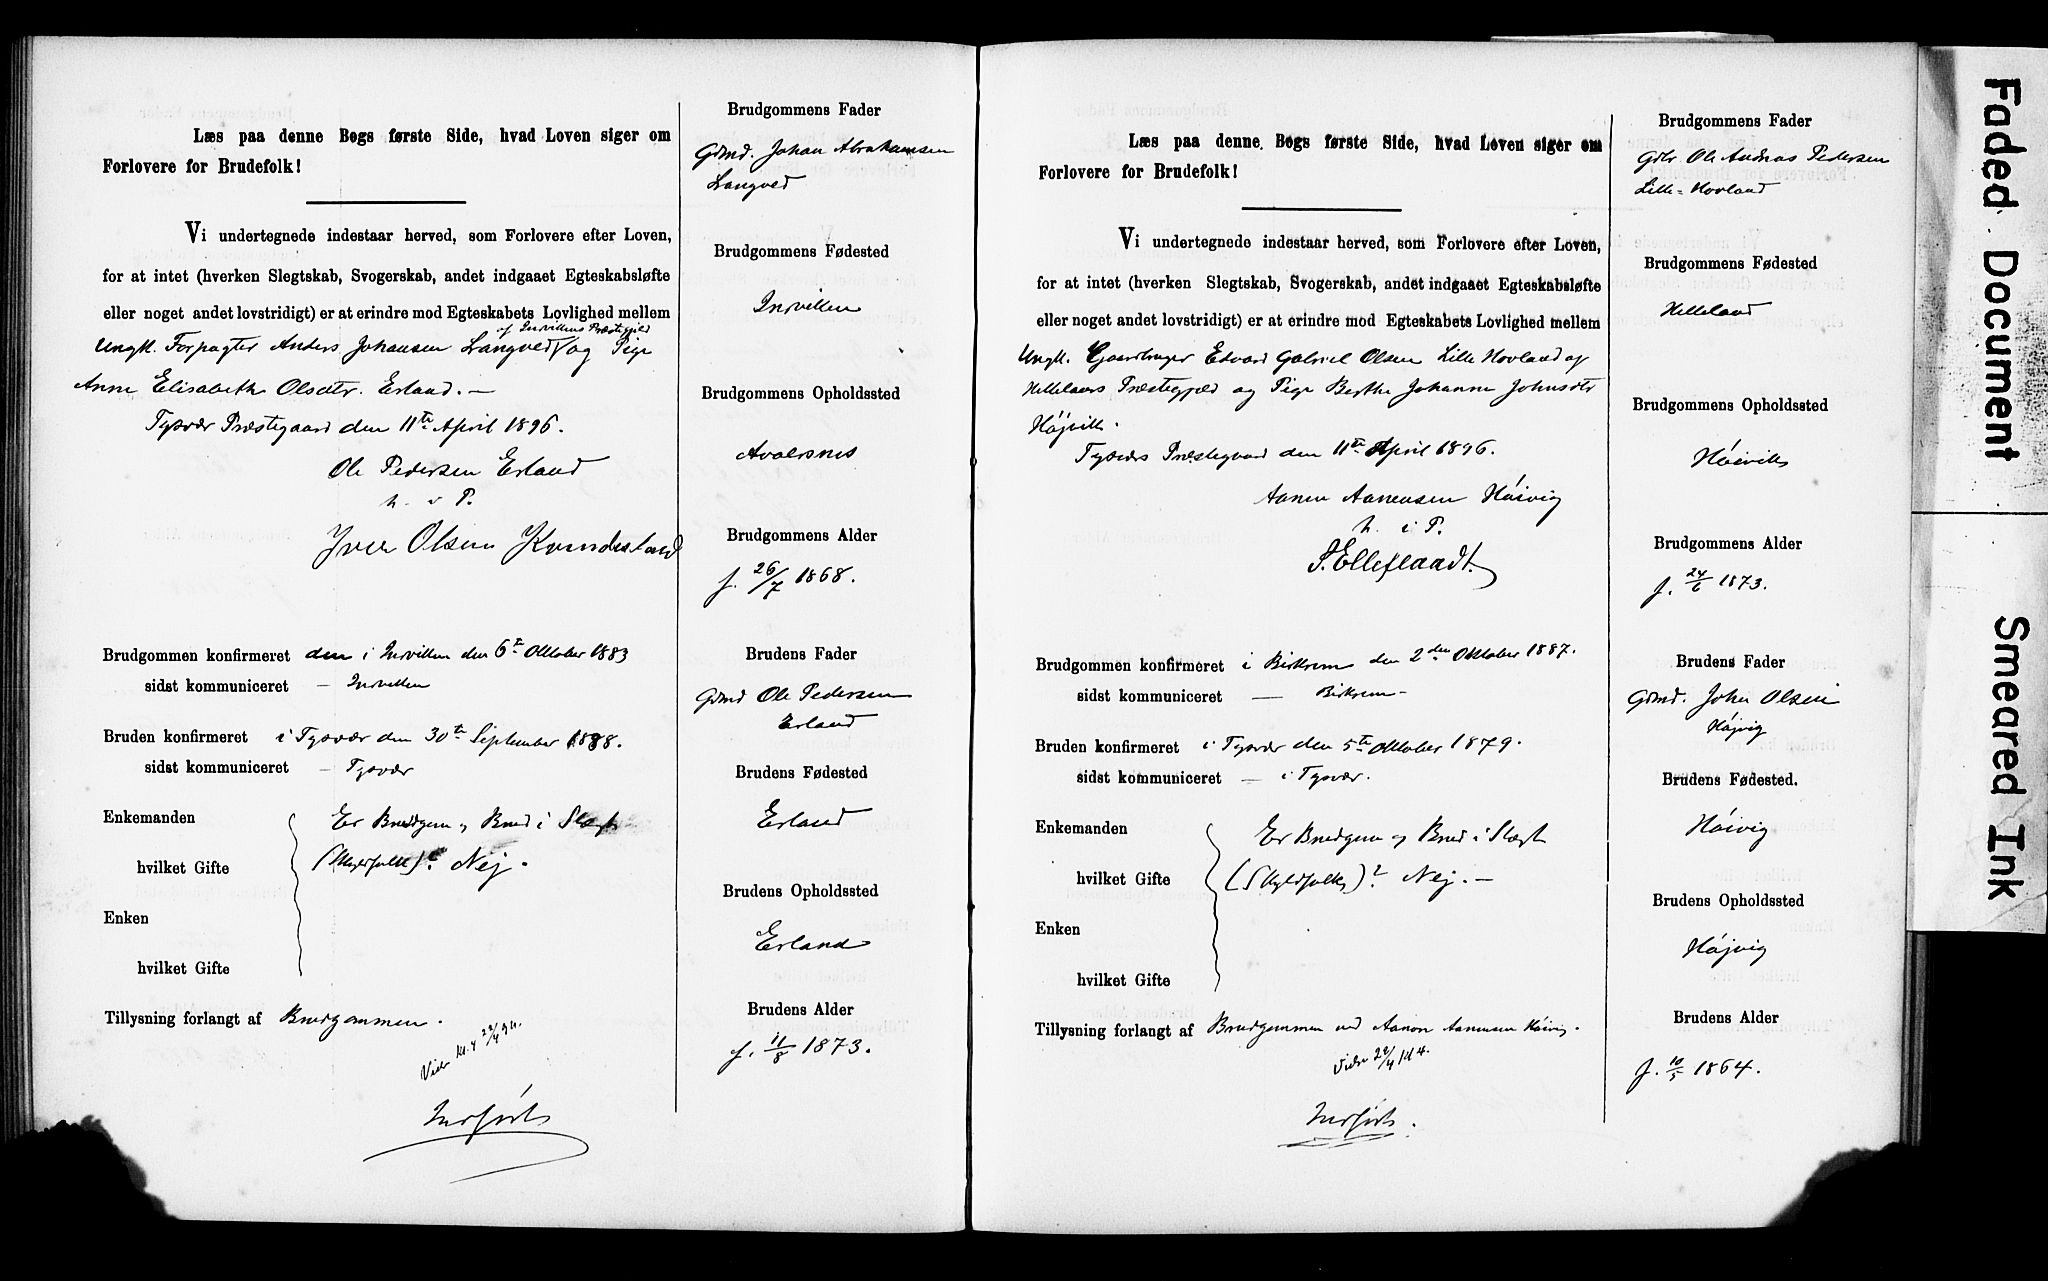 Læs paa denne Bogs første Side, hvad Loven siger om
Forlovere for Brudefolk!
Vi undertegnede indestaar herved, som Forlovere efter Loven,
for at intet (hverken Slegtskab, Svogerskab, andet indgaaet Egteskabsløfte
eller noget andet lovstridigt) er at erindre mod Egteskabets Lovlighed mellem
af Insvillens Præstegjeld
Ungk. Forpagter Anders Johansen Langved og Pige
Anne Elisabeth Olsdtr. Erland. —
Tysvær Præstegaard den 11te April 1896.
Ole Pedersen Erland
h. i P.
Iver Olsen
Brudgommen konfirmeret i Insvillen den 6te Oktober 1883
sidst kommuniceret — Insvillen
Bruden konfirmeret i Tysvær den 30te September 1888.
sidst kommuniceret — Tysvær
Enkemanden
hvilket Gifte
Enken
hvilket Gifte
Er Brudgom og Brud i Slægt
(Skyldfolk)? Nej.
Tillysning forlangt af Brudgommen.
Indført
Brudgommens Fader
Gdmd. Johan Abrahamsen
Langved
Brudgommens Fødested
Insvillen
Brudgommens Opholdssted
Avalsnes
Brudgommens Alder
f. 26/7 1868.
Brudens Fader
Gdmd Ole Pedersen
Erland
Brudens Fødested
Erland
Brudens Opholdssted
Erland
Brudens Alder
f. 11/8 1873.
Læs paa denne Bogs første Side, hvad Loven siger om
Forlovere for Brudefolk!
Vi undertegnede indestaar herved, som Forlovere efter Loven,
for at intet (hverken Slegtskab, Svogerskab, andet indgaaet Egteskabsløfte
eller noget andet lovstridigt) er at erindre mod Egteskabets Lovlighed mellem
Ungk. Gaardbruger Edvard Gabriel Olsen Lille Hovland af
Hellelands Præstegjeld og Pige Berthe Johanne Johnsdtr
Højvik.
Tysværs Præstegaard den 11te April 1896.
Aanen Aanensen Høivig
h. i P.
S. Elleflaadt.
Brudgommen konfirmeret i Birkrem den 2den Oktober 1887.
sidst kommuniceret — Birkrem —
Bruden konfirmeret i Tysvær den 5te Oktober 1879.
sidst kommuniceret — i Tysvær.
Enkemanden
hvilket Gifte
Enken
hvilket Gifte
Er Brudgom og Brud i Slægt
(Skyldfolk)? Nej. —
Tillysning forlangt af Brudgommen ved Aanon Aanensen Høivig.
Indført.
Brudgommens Fader
Gdbr Ole Andreas Pedersen
Lille-Hovland
Brudgommens Fødested
Helleland
Brudgommens Opholdssted
Høivik
Brudgommens Alder
f. 24/6 1873.
Brudens Fader
Gdmd. John Olsen
Højvig
Brudens Fødested.
Høivig
Brudens Opholdssted
Højvig
Brudens Alder
f. 10/5 1864.
Faded Document
Smeared Ink